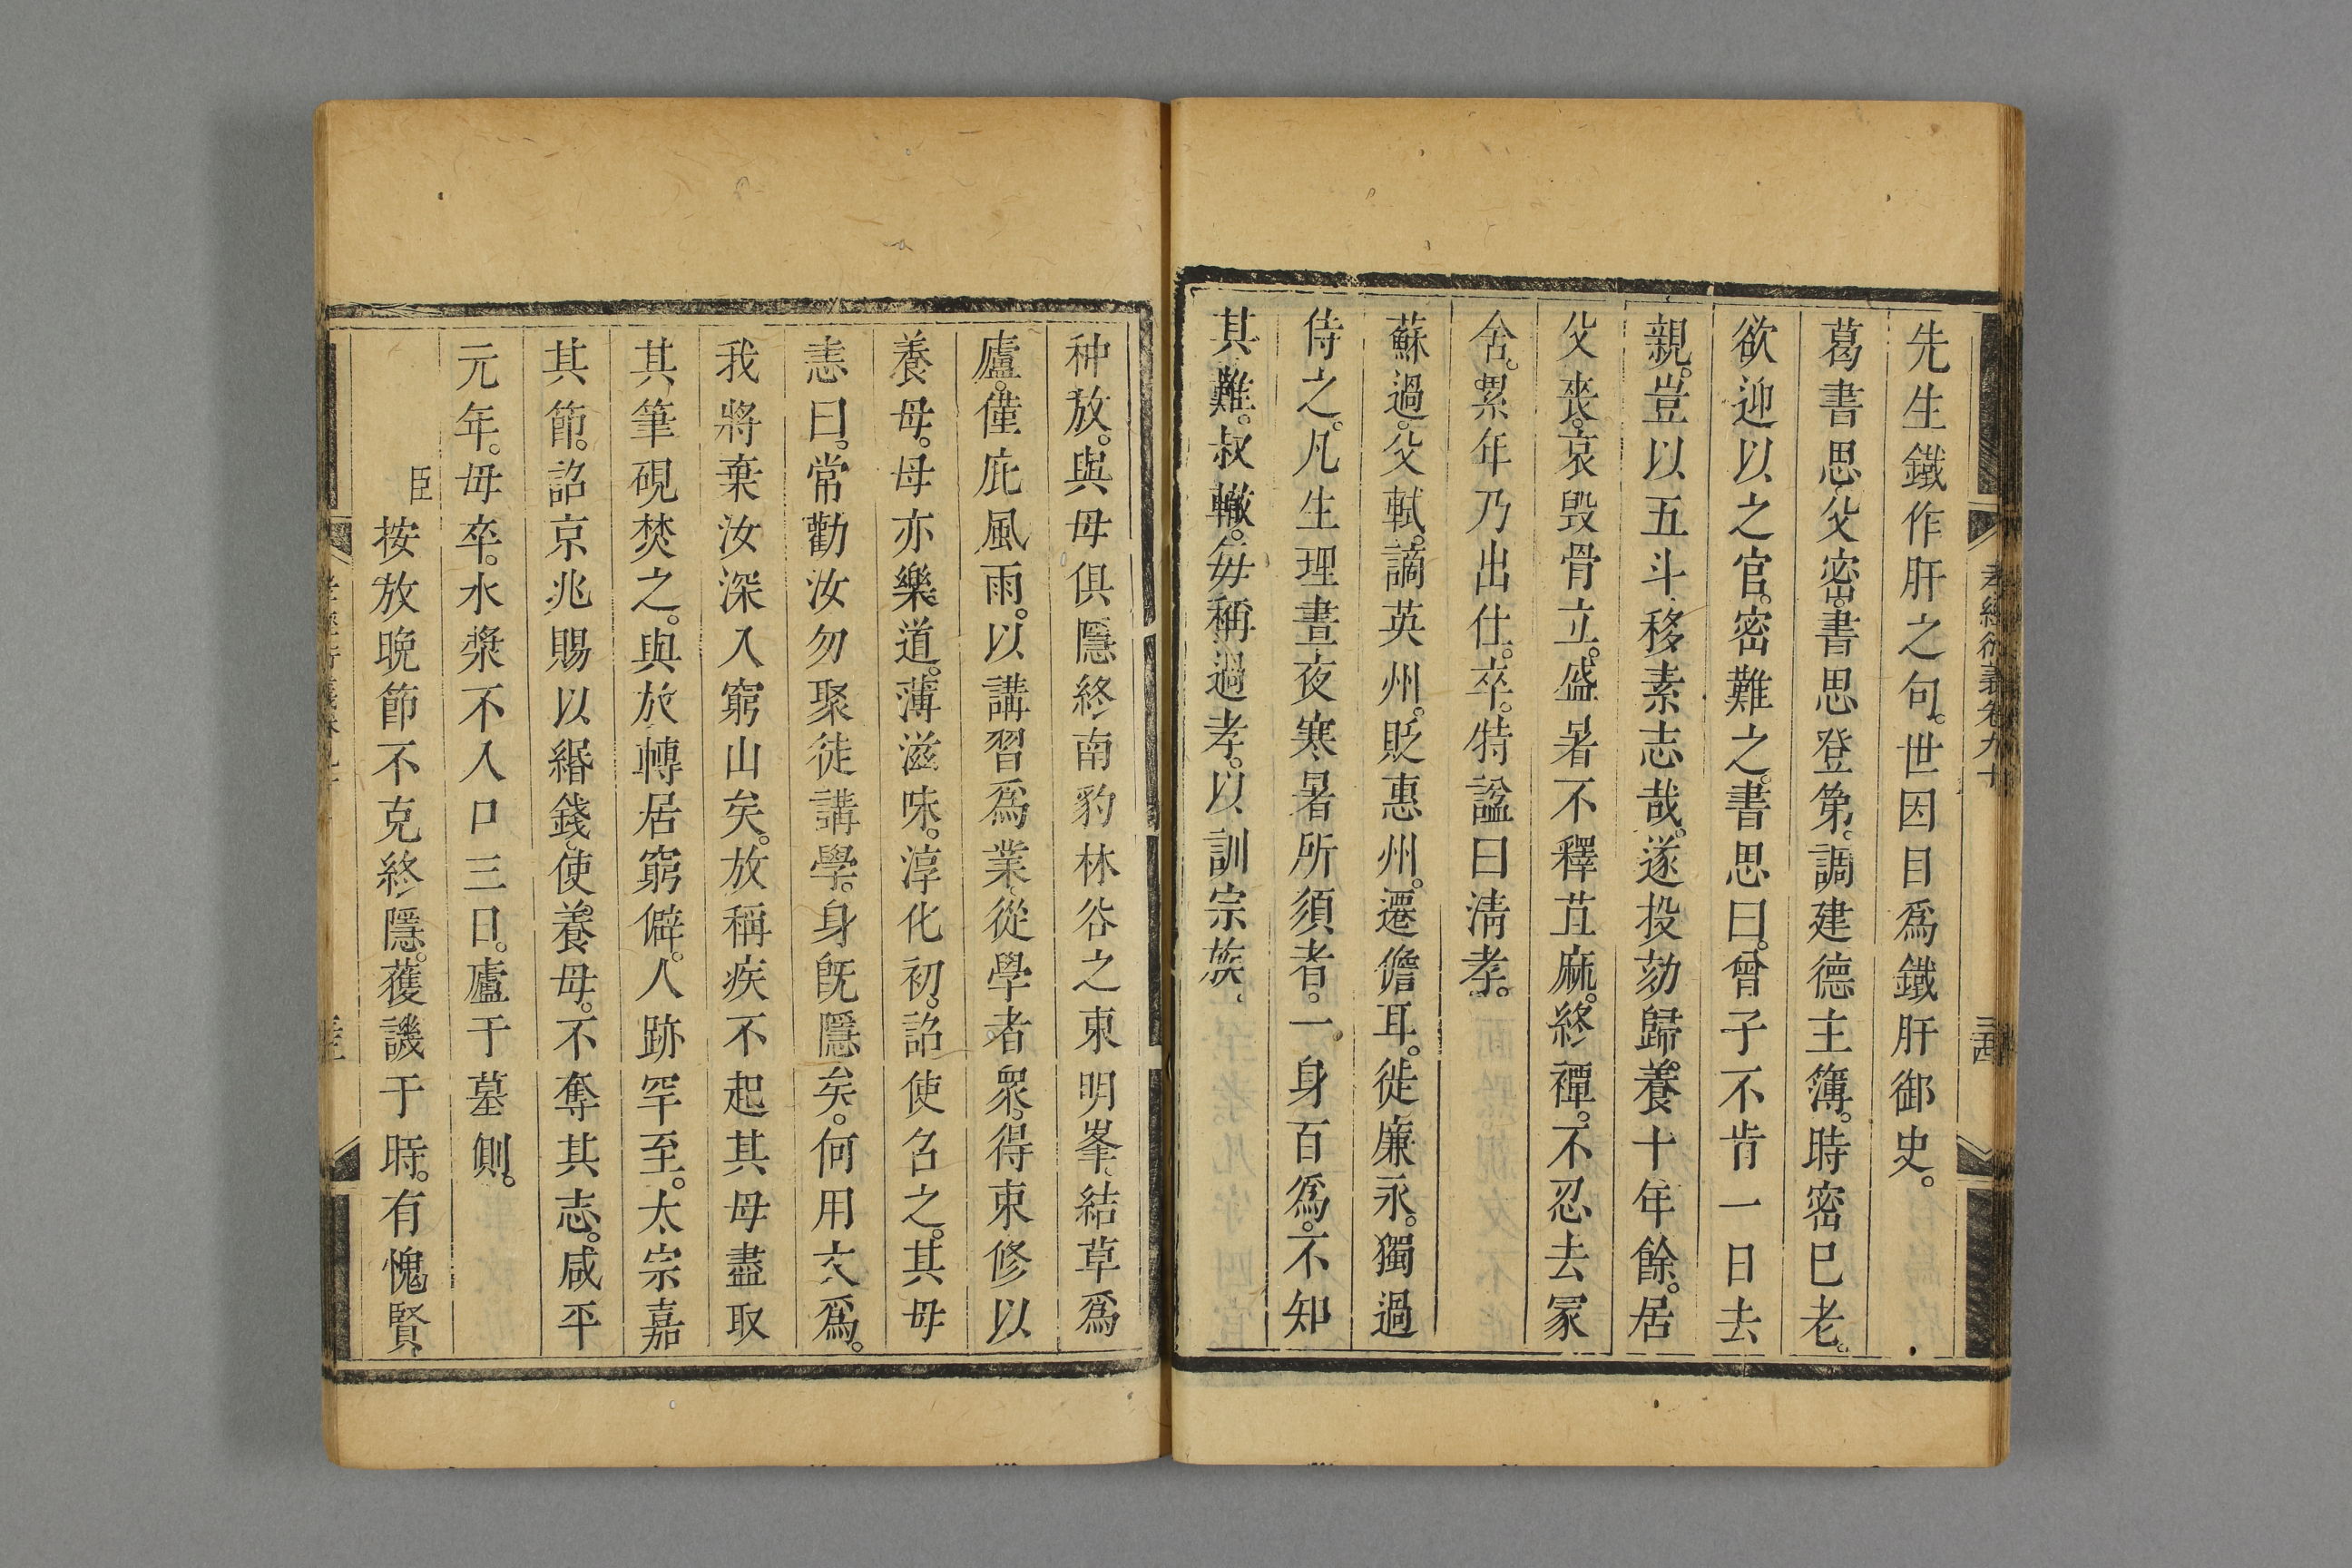 孝經衍義卷九十
三西
先生鐵作肝之句。世因目爲鐵肝御史。
葛書思。父密。書思登第。調建德主簿。時密已老。
欲迎以之官。密難之。書思曰。曾子不肯一日去
親。豈以五斗移素志哉。遂投劾歸。養十年餘。居
父喪。哀毀骨立。盛暑不釋苴麻。終禫。不忍去冢
舍。累年乃出仕。卒。特諡曰淸孝。
蘇過。父軾。謫英州。貶惠州。遷儋耳。徙廉永。獨過
侍之。凡生理晝夜寒暑所須者。一身百爲。不知
其難。叔轍。每稱過孝。以訓宗族、
种放。與母俱隱終南豹林谷之東明峯。結草爲
廬。僅庇風雨。以講習爲業。從學者衆。得束修以
養母。母亦樂道。薄滋味。淳化初。詔使召之。其母
恚曰。常勸汝勿聚徒講學。身旣隱矣。何用文爲。
我將棄汝深入窮山矣。放稱疾不起其母盡取
其筆硯焚之。與放轉居窮僻。人跡罕至。太宗嘉
其節。詔京兆賜以緡錢。使養母。不奪其志。咸平
元年。母卒。水漿不入口三日。廬于墓側。
臣按放晚節不克終隱。獲譏于時。有愧賢